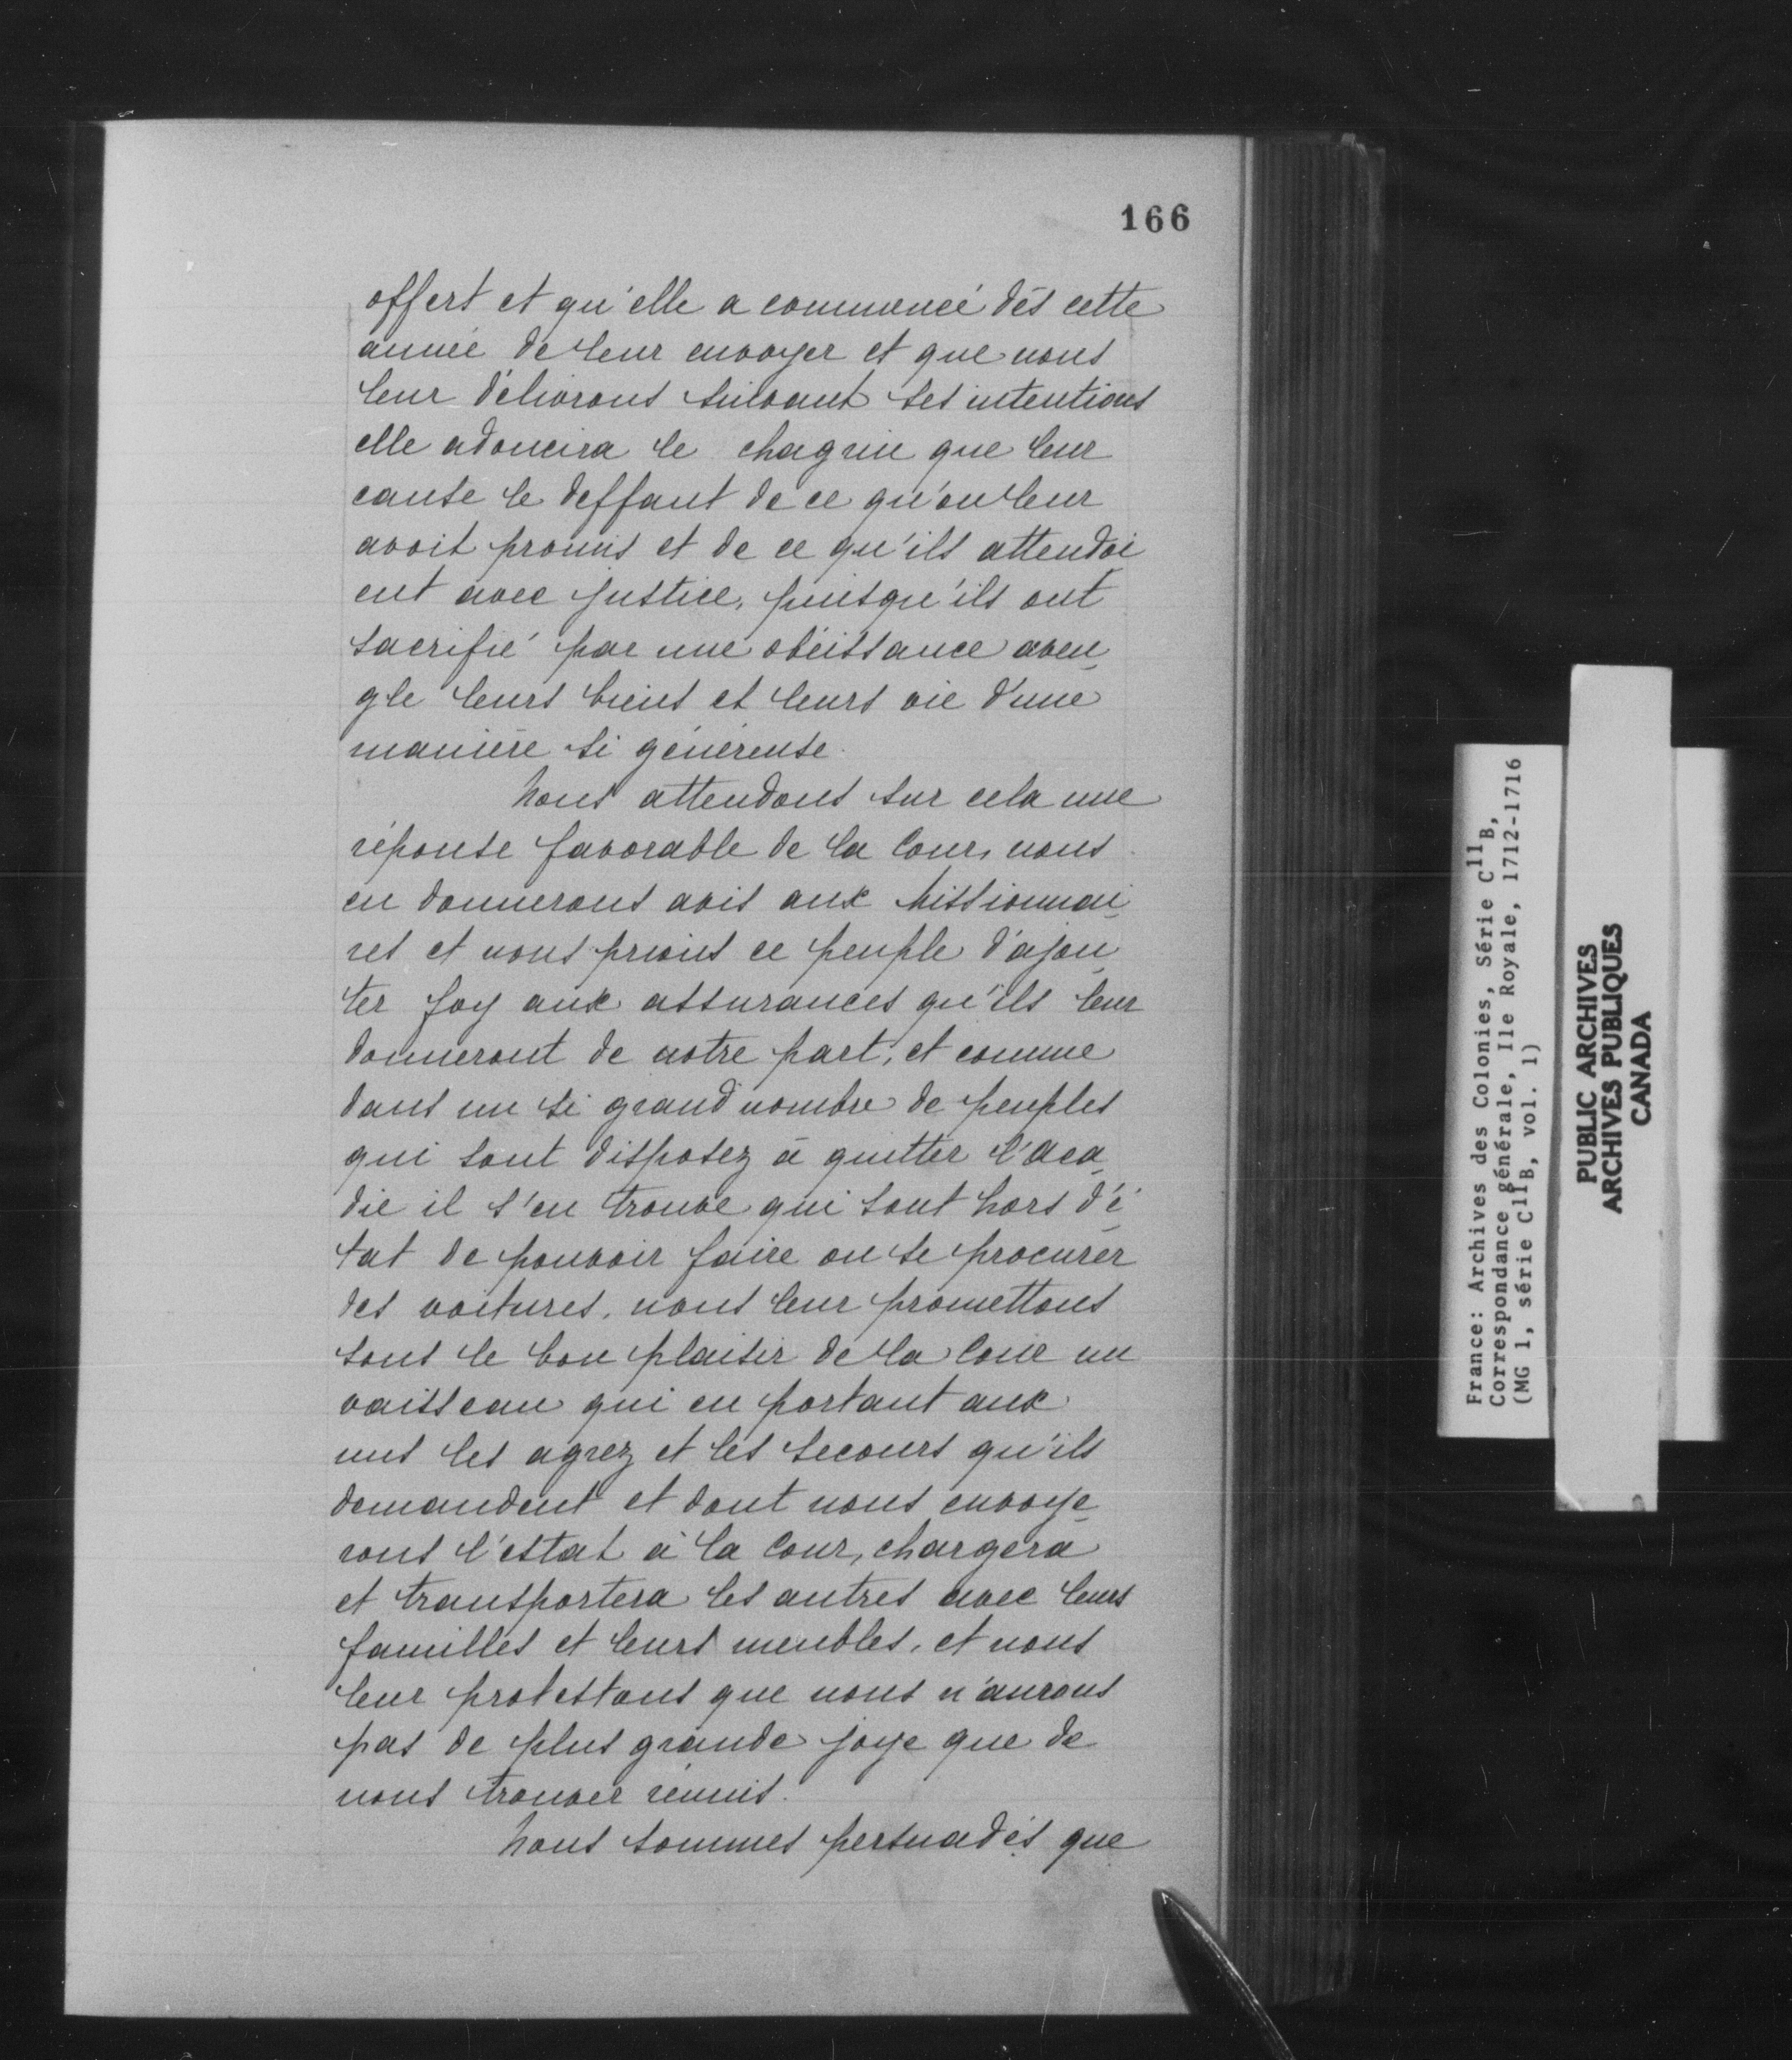 166
offert et qu'elle a commencé dès cette
année de leur envoyer et que nous
leur délivrons suivant ses intentions
elle adoucira le chagrin que leur
cause le deffaut de ce qu'on leur
avoit promis et de ce qu'ils attendoi
ent avec justice, puisqu'ils ont
sacrifié par une obéissance aveu
gle leurs biens et leurs vie d'une
manière si généreuse.
Nous attendons sur cela une
réponse favorable de la Cour, nous
en donnerons avis aux Missionnai
res et nous prions ce peuple d'ajou
ter foy aux assurances qu'ils leur
donneront de notre part, et comme
dans un si grand nombre de peuples
qui sont disposez à quitter l'Aca
die il s'en trouve qui sont hors d'é
tat de pouvoir faire ou se procurer
des voitures, nous leur promettons
sous le bon plaisir de la Cour un
vaisseau qui en portant aux
uns les agrez et les secours qu'ils
demandent et dont nous envoye
rons l'estat à la Cour, chargera
et transportera les autres avec leurs
familles et leurs meubles, et nous
leur protestons que nous n'aurons
pas de plus grande joye que de
nous trouver réunis.
Nous sommes persuadés que
France: Archives des Colonies, Série C11B,
Correspondance générale, Ile Royale, 1712-1716
(MG 1, série C11B, vol. 1)
PUBLIC ARCHIVES
ARCHIVES PUBLIQUES
CANADA